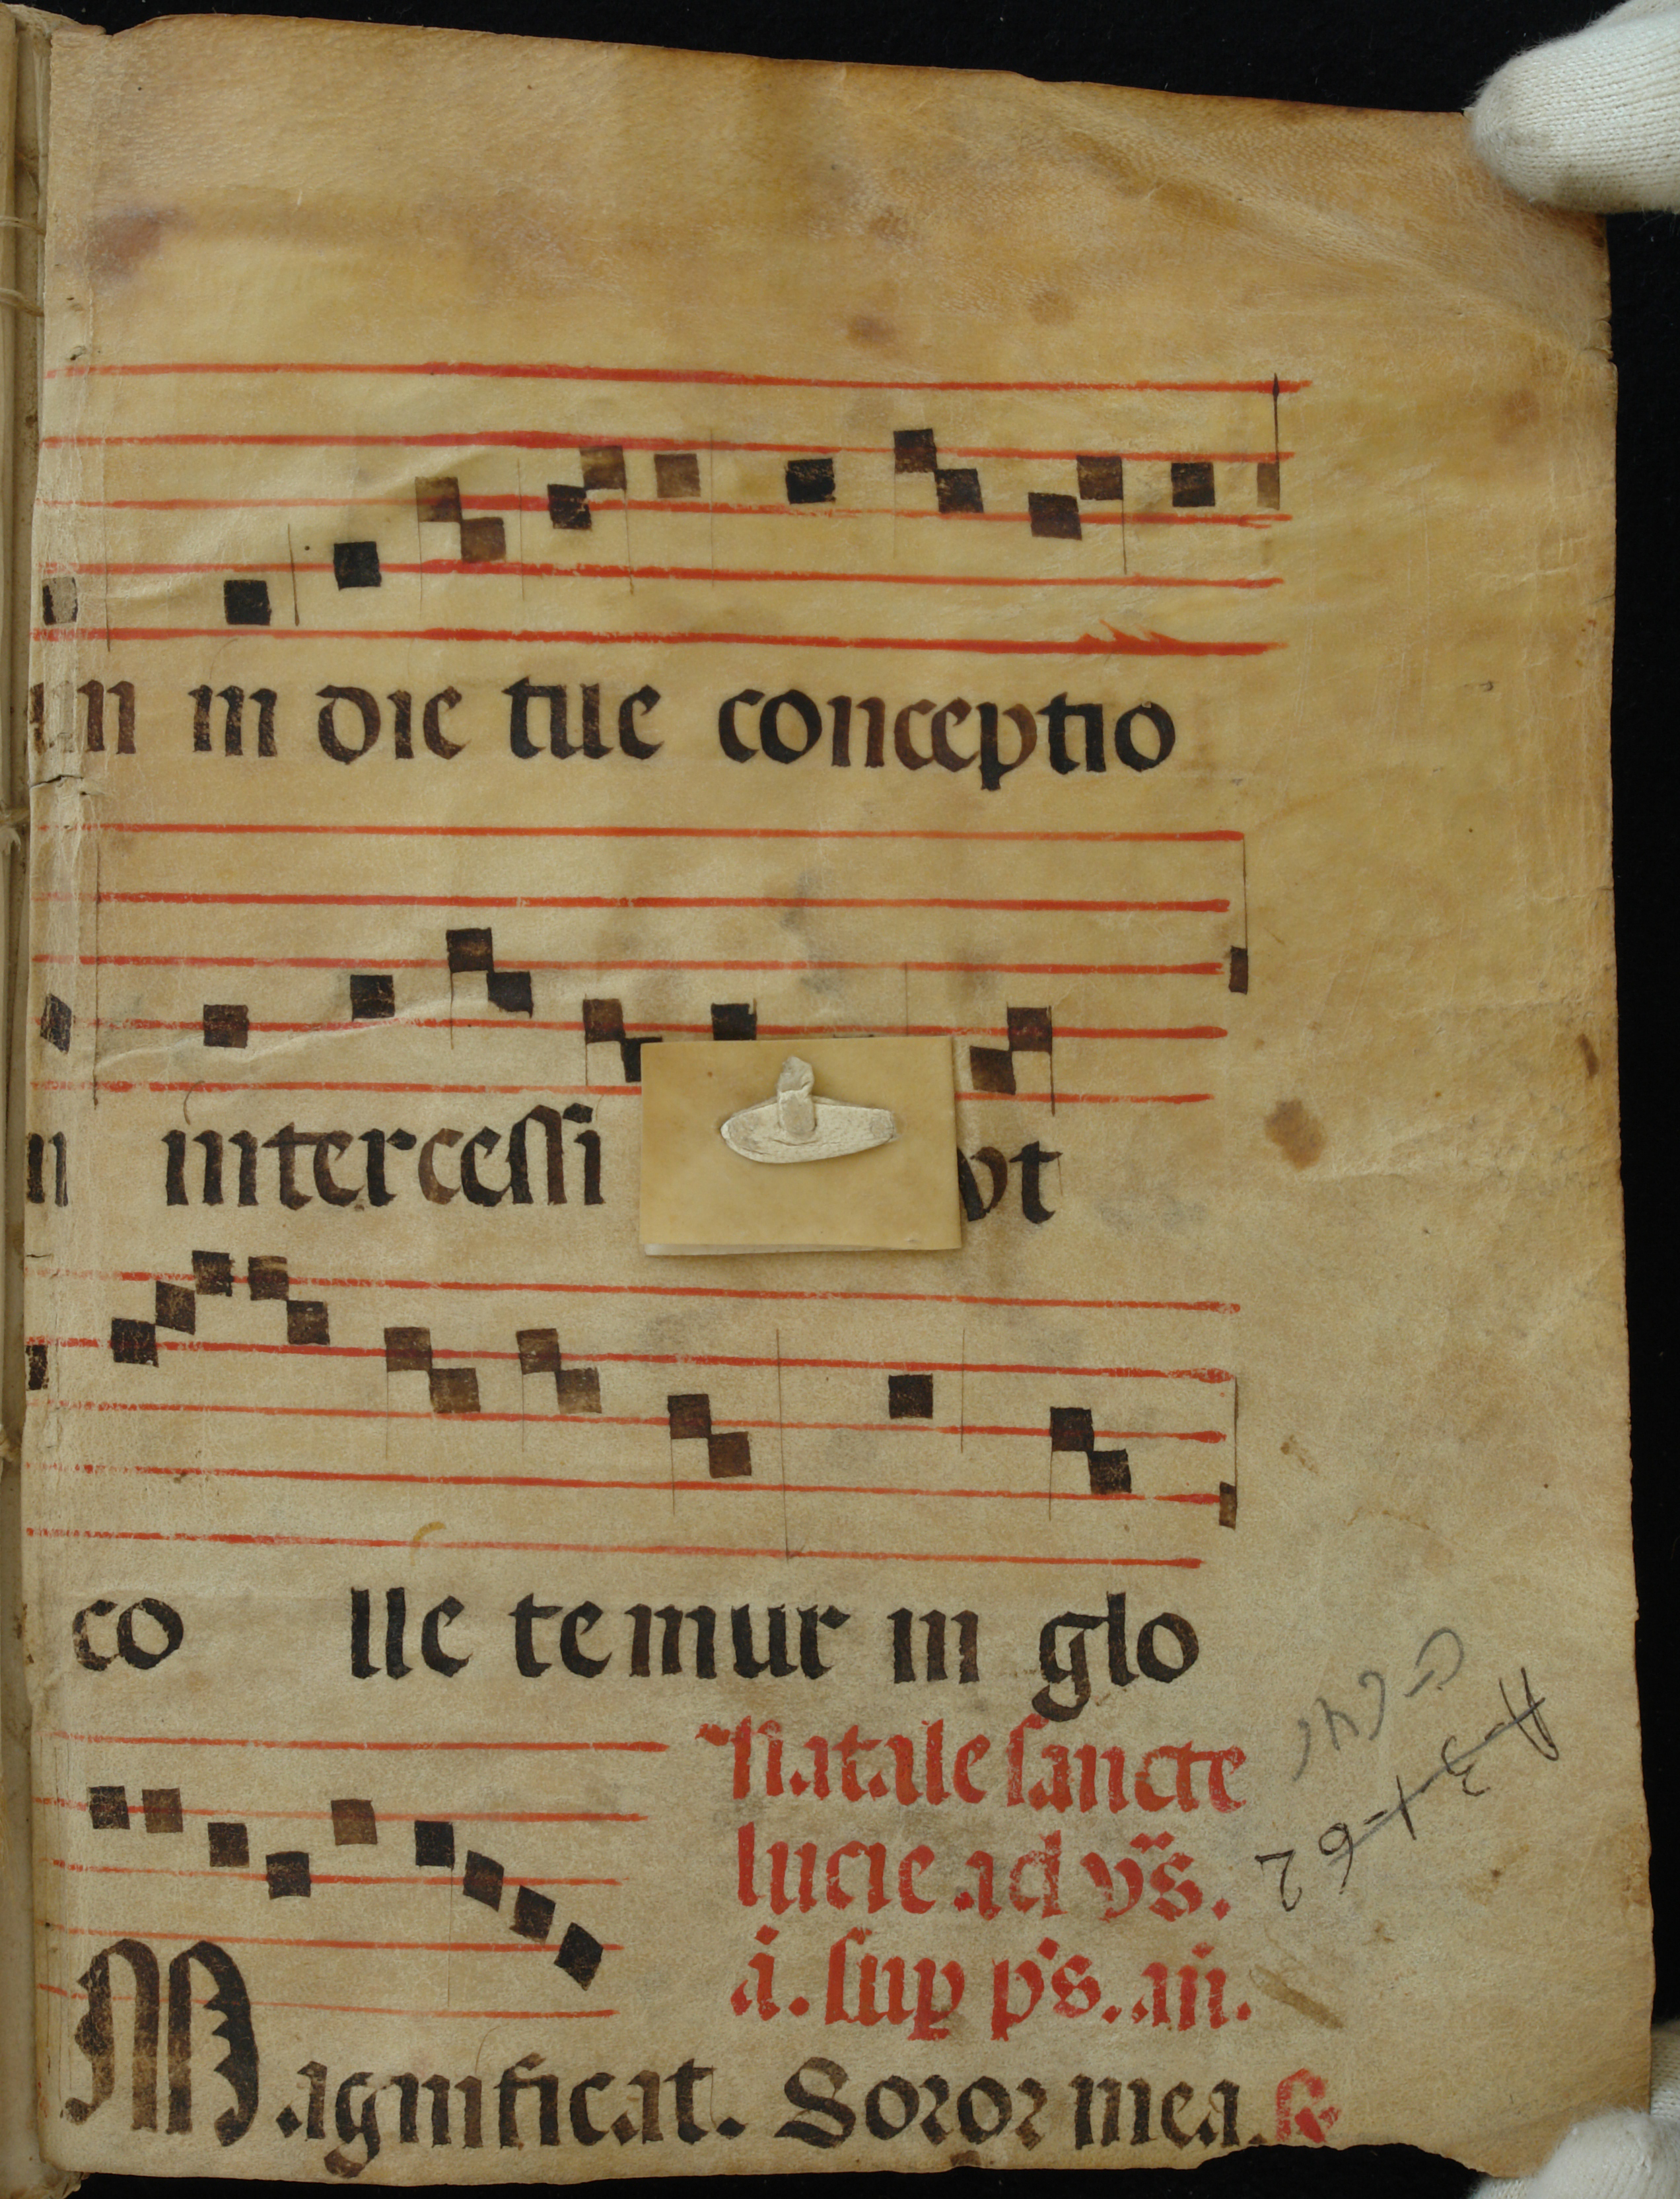 in die tue conceptio
intercessi vt
co lle temur in glo
Natale sancte
lucie ad vs̃.
a. sup ps. añ.
Magnificat. Soror mea.